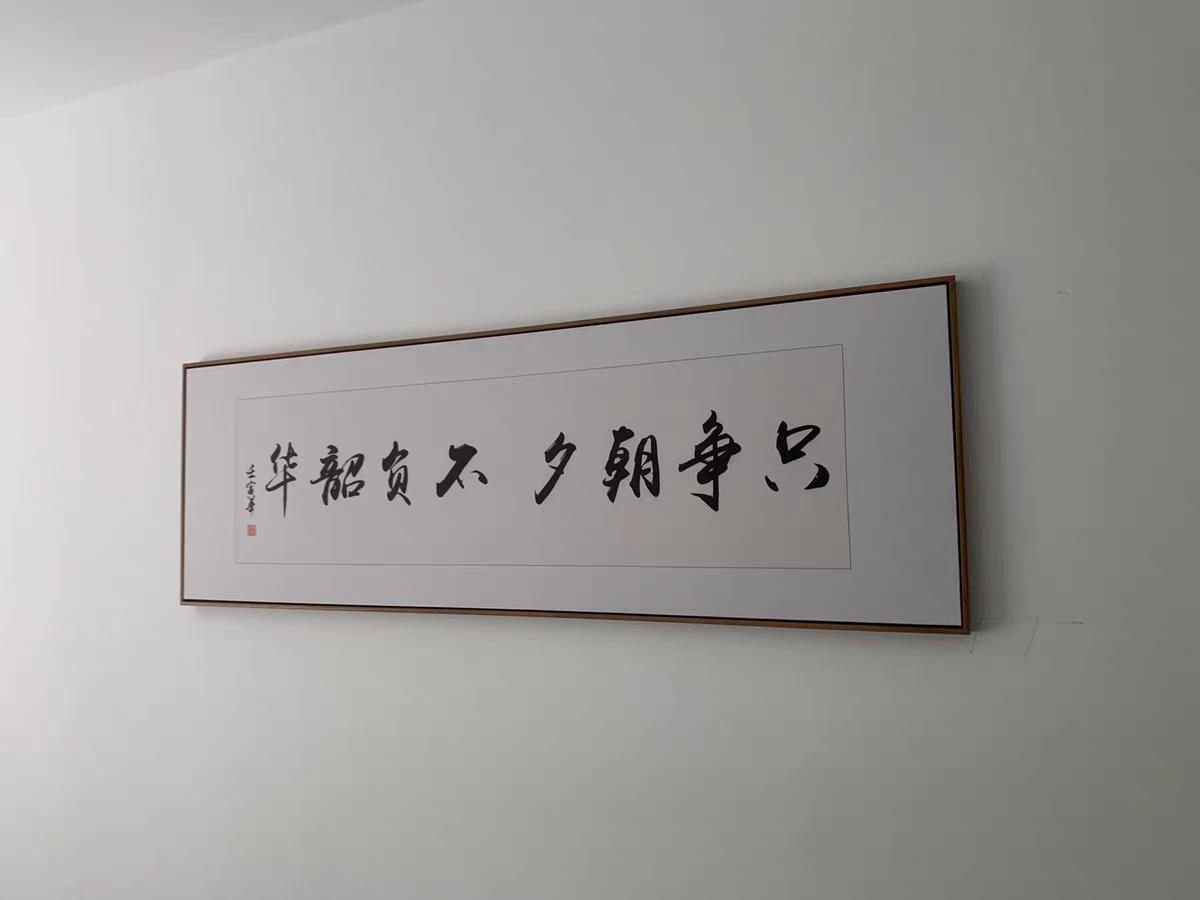 只争朝夕 不负韶华
壬寅年